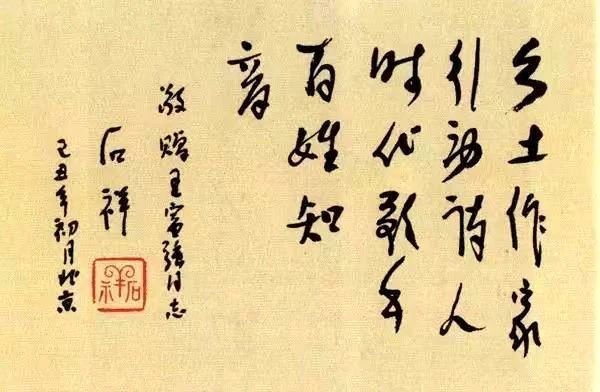 乡土作家
动诗人
时代歌手
百姓知
音
敬赠王富强同志
石祥
己丑年初月北京
石祥